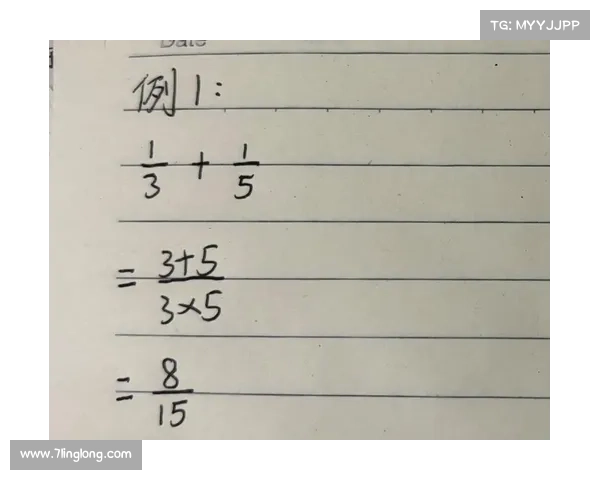 TG: MYYJJPP
Date
例1:
1/3 + 1/5
= 3+5/3×5
= 8/15
www.7linglong.com